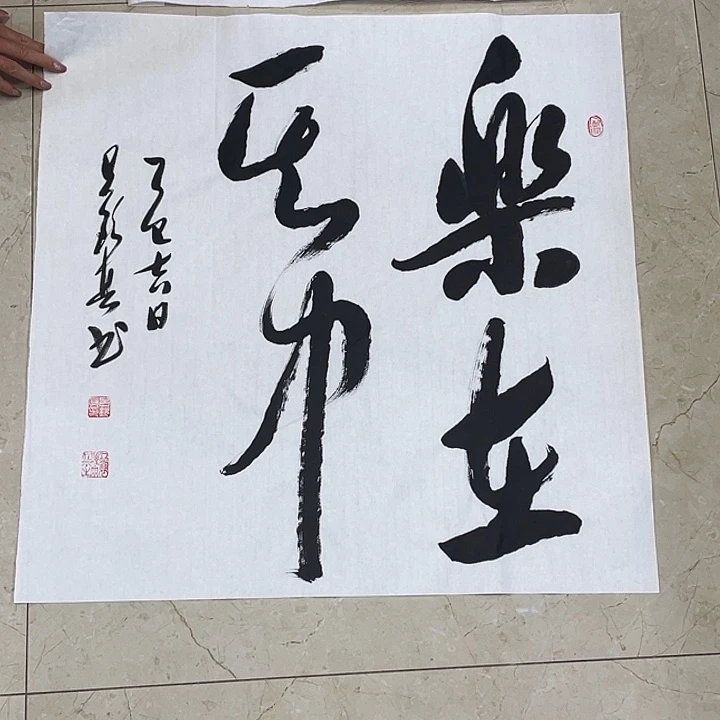 樂在
其中
乙巳吉日
书